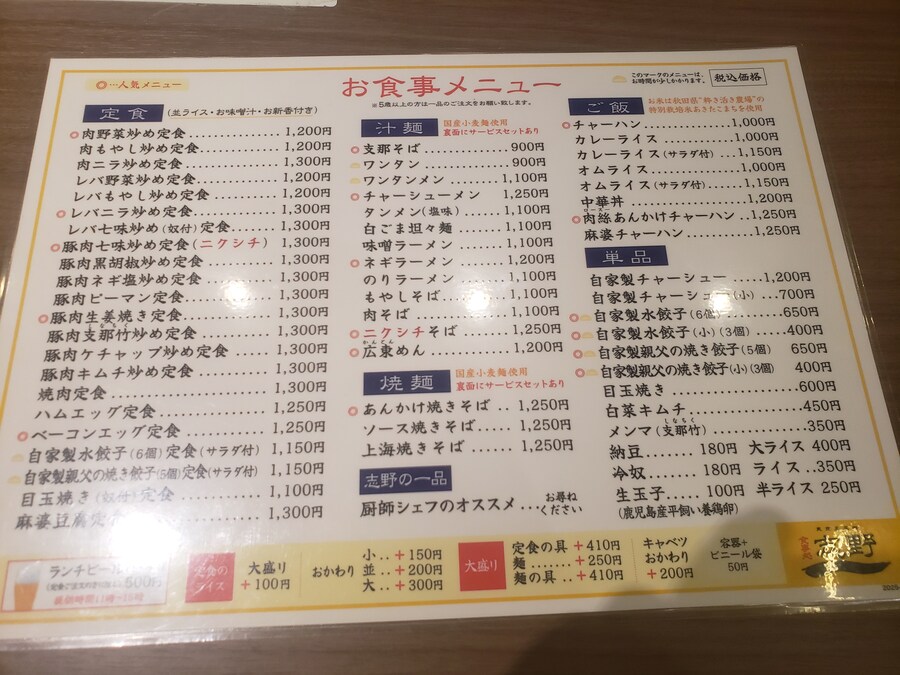 …人気メニュー
お食事メニュー
※5歳以上の方は一品のご注文をお願い致します。
このマークのメニューは、
お時間が少しかかります。
税込価格
定食 (並ライス・お味噌汁・お新香付き)
肉野菜炒め定食 1,200円
肉もやし炒め定食 1,200円
肉ニラ炒め定食 1,300円
レバ野菜炒め定食 1,200円
レバもやし炒め定食 1,200円
レバニラ炒め定食 1,300円
レバ七味炒め(奴付)定食 1,300円
豚肉七味炒め定食(ニクシチ) 1,300円
豚肉黒胡椒炒め定食 1,300円
豚肉ネギ塩炒め定食 1,300円
豚肉ピーマン定食 1,300円
豚肉生姜焼き定食 1,300円
豚肉支那竹炒め定食 1,300円
豚肉ケチャップ炒め定食 1,300円
豚肉キムチ炒め定食 1,300円
焼肉定食 1,300円
ハムエッグ定食 1,250円
ベーコンエッグ定食 1,250円
自家製水餃子(6個)定食(サラダ付) 1,150円
自家製親父の焼き餃子(5個)定食(サラダ付) 1,150円
目玉焼き(奴付)定食 1,100円
麻婆豆腐定 1,250円
汁麺
国産小麦麺使用
裏面にサービスセットあり
支那そば 900円
ワンタン 900円
ワンタンメン 1,100円
チャーシューメン 1,250円
タンメン(塩味) 1,100円
白ごま坦々麺 1,100円
味噌ラーメン 1,100円
ネギラーメン 1,200円
のりラーメン 1,100円
もやしそば 1,100円
肉そば 1,100円
ニクシチそば 1,250円
かんとん
広東めん 1,200円
焼麺
国産小麦麺使用
裏面にサービスセットあり
あんかけ焼きそば 1,250円
ソース焼きそば 1,250円
上海焼きそば 1,250円
志野の一品
厨師シェフのオススメ…お尋ねください
ご飯
お米は秋田県"粋き活き農場"の
特別栽培米あきたこまちを使用
チャーハン 1,000円
カレーライス 1,000円
カレーライス(サラダ付) 1,150円
オムライス 1,000円
オムライス(サラダ付) 1,150円
中華丼 1,200円
肉絲あんかけチャーハン 1,250円
麻婆チャーハン 1,250円
単品
自家製チャーシュー 1,200円
自家製チャーシュー(小) 700円
自家製水餃子(6個) 650円
自家製水餃子(小)(3個) 400円
自家製親父の焼き餃子(5個) 650円
自家製親父の焼き餃子(小)(3個) 400円
目玉焼き 600円
白菜キムチ 450円
しなちく
メンマ(支那竹) 350円
納豆 180円 大ライス 400円
冷奴 180円 ライス 350円
生玉子 100円 半ライス 250円
(鹿児島産平飼い養鶏卵)
ランチビー
500円
定食のライス
大盛り
+100円
おかわり
小 +150円
並 +200円
大 +300円
大盛り
定食の具 +410円
麺 +250円
麺の具 +410円
キャベツ
おかわり
+200円
容器+
ビニール袋
50円
食事処
志野